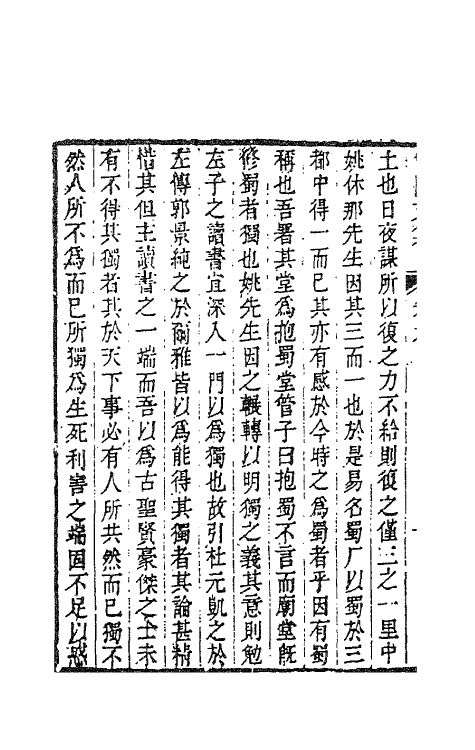 土也日夜謀所以復之力不給則復之僅三之一里中
姚休那先生因其三而一也於是易名蜀厂以蜀於三
都中得一而已其亦有感於今時之爲蜀者乎因有蜀
稱也吾署其堂爲抱蜀堂管子曰抱蜀不言而廟堂旣
修蜀者獨也姚先生因之輾轉以明獨之義其意則勉
左子之讀書宜深入一門以爲獨也故引杜元凱之於
左傳郭景純之於爾雅皆以爲能得其獨者其論甚精
惜其但主讀書之一端而吾以爲古聖賢豪傑之士未
有不得其獨者其於天下事必有人所共然而已獨不
然人所不爲而已所獨爲生死利害之端固不足以惑